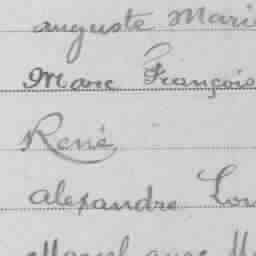 auguste Mari
Marc François
René
alexandre Lou
Marcel